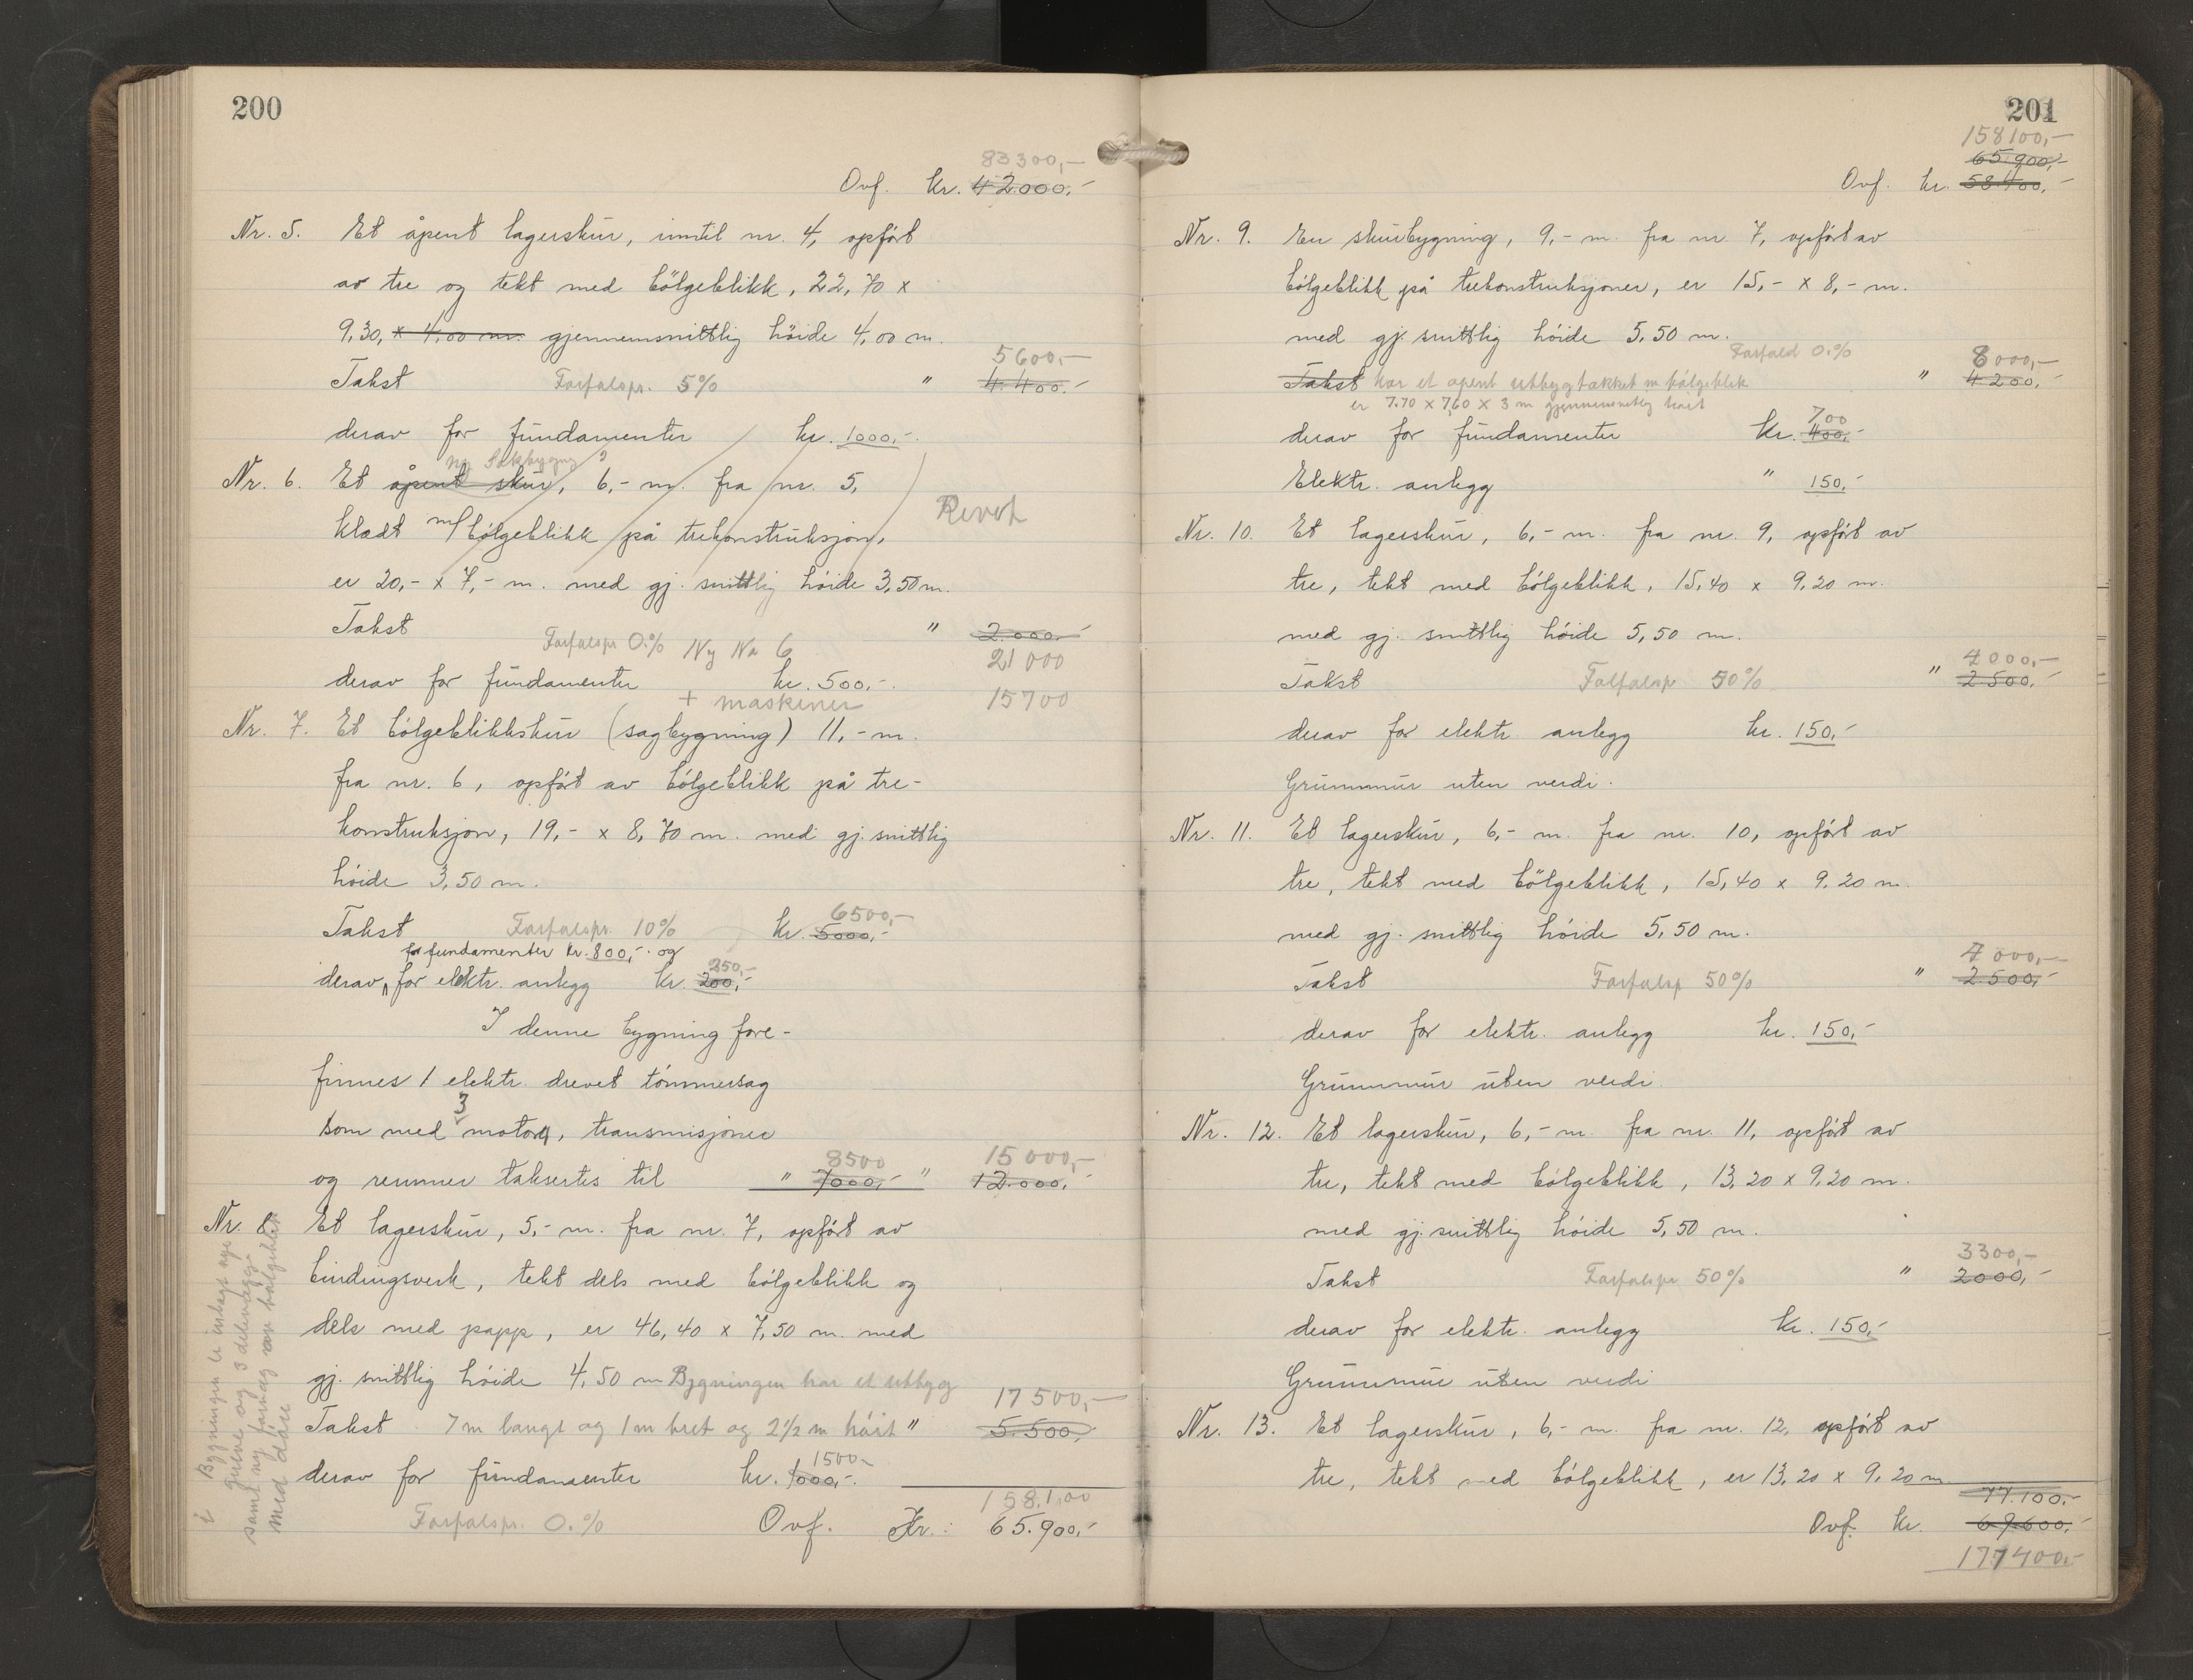 200
83300,-
Ovf. kr. 42.000,-
Nr. 5. Et åpent lagerskur, inntil nr. 4, opført
av tre og tekt med bölgeblikk, 22,70 x
9,30, x 4,00 m. gjennemsnittlig höide 4,00 m.
5600,-
Takst Forfalspr. 5% " 4.400,-
derav for fundamenter kr. 1000,-
ny Sakbygning ?
Nr. 6. Et åpent skur, 6,- m. fra nr. 5,
Revet
klædt m/ bölgeblikk på trekonstruksjon,
er 20,- x 7,- m. med gj. snittlig höide 3,50 m.
Takst " 2.000,-
Forfalspr 0.% Ny No 6 21000
derav for fundamenter kr. 500,-
+ maskiner 15700
Nr. 7. Et bölgeblikkskur (sagbygning) 11,- m.
fra nr. 6, opført av bölgeblikk på tre-
konstruksjon, 19,- x 8,70 m. med gj. snittlig
höide 3,50 m.
6500,-
Takst Forfalspr. 10% kr. 5000,-
for fundamenter kr. 800,- og
250,-
derav, for elektr. anlegg kr. 200,-
I denne bygning fore-
finnes 1 elektr. drevet tömmersag
3
som med motor, transmisjoner
8500 15000,-
og remmer taksertes til " 7000,- " 12.000,-
Nr. 8. Et lagerskur, 5,- m. fra nr. 7, opført av
bindingsverk, tekt dels med bölgeblikk og
dels med papp, er 46,40 x 7,50 m. med
gj. snittlig höide 4,50 m Bygningen har et utbyg
17500,-
Takst 7 m langt og 1 m bret og 2 1/2 m höit " 5.500,-
1500-
derav for fundamenter kr. 1000,-
158.100
Forfalspr. 0.% Ovf. Kr.: 65.900,-
i Bygningen er inlagt nye
og 3 delevægge
samt ny av bølgeblik
med döre
201
158100,-
65.900,-
Ovf. kr. 58.400,-
Nr. 9. En skurbygning, 9,- m. fra nr. 7, opført av
bölgeblikk på trekonstruksjoner, er 15,- x 8,- m.
med gj. snittlig höide 5,50 m.
Forfald 0.% 8000,-
Takst har et åpent utbyg tækket m bölgeblik " 4.200,-
er 7.70 x 7,60 x 3 m gjennemsnitlig höit
700
derav for fundamenter kr. 400,-
Elektr. anlegg " 150,-
Nr. 10. Et lagerskur, 6,- m. fra nr. 9, opført av
tre, tekt med bölgeblikk, 15,40 x 9,20 m.
med gj. snittlig höide 5,50 m.
4000,-
Takst Forfalsp 50% " 2.500,-
derav for elektr. anlegg kr. 150,-
Grunnmur uten verdi.
Nr. 11. Et lagerskur, 6,- m. fra nr. 10, opført av
tre, tekt med bölgeblikk, 15,40 x 9,20 m.
med gj. snittlig höide 5,50 m.
4000,-
Takst Forfalsp 50% " 2.500,-
derav for elektr. anlegg kr. 150,-
Grunnmur uten verdi.
Nr. 12. Et lagerskur, 6,- m. fra nr. 11, opført av
tre, tekt med bölgeblikk, 13,20 x 9,20 m.
med gj. snittlig höide 5,50 m.
3300,-
Takst Forfalspr 50% " 2000,-
derav for elektr. anlegg kr. 150,-
Grunnmur uten verdi
Nr. 13. Et lagerskur, 6,- m. fra nr. 12, opført av
tre, tekt med bölgeblikk, er 13,20 x 9,20 m
77.100,-
Ovf. kr. 69.600,-
177400,-